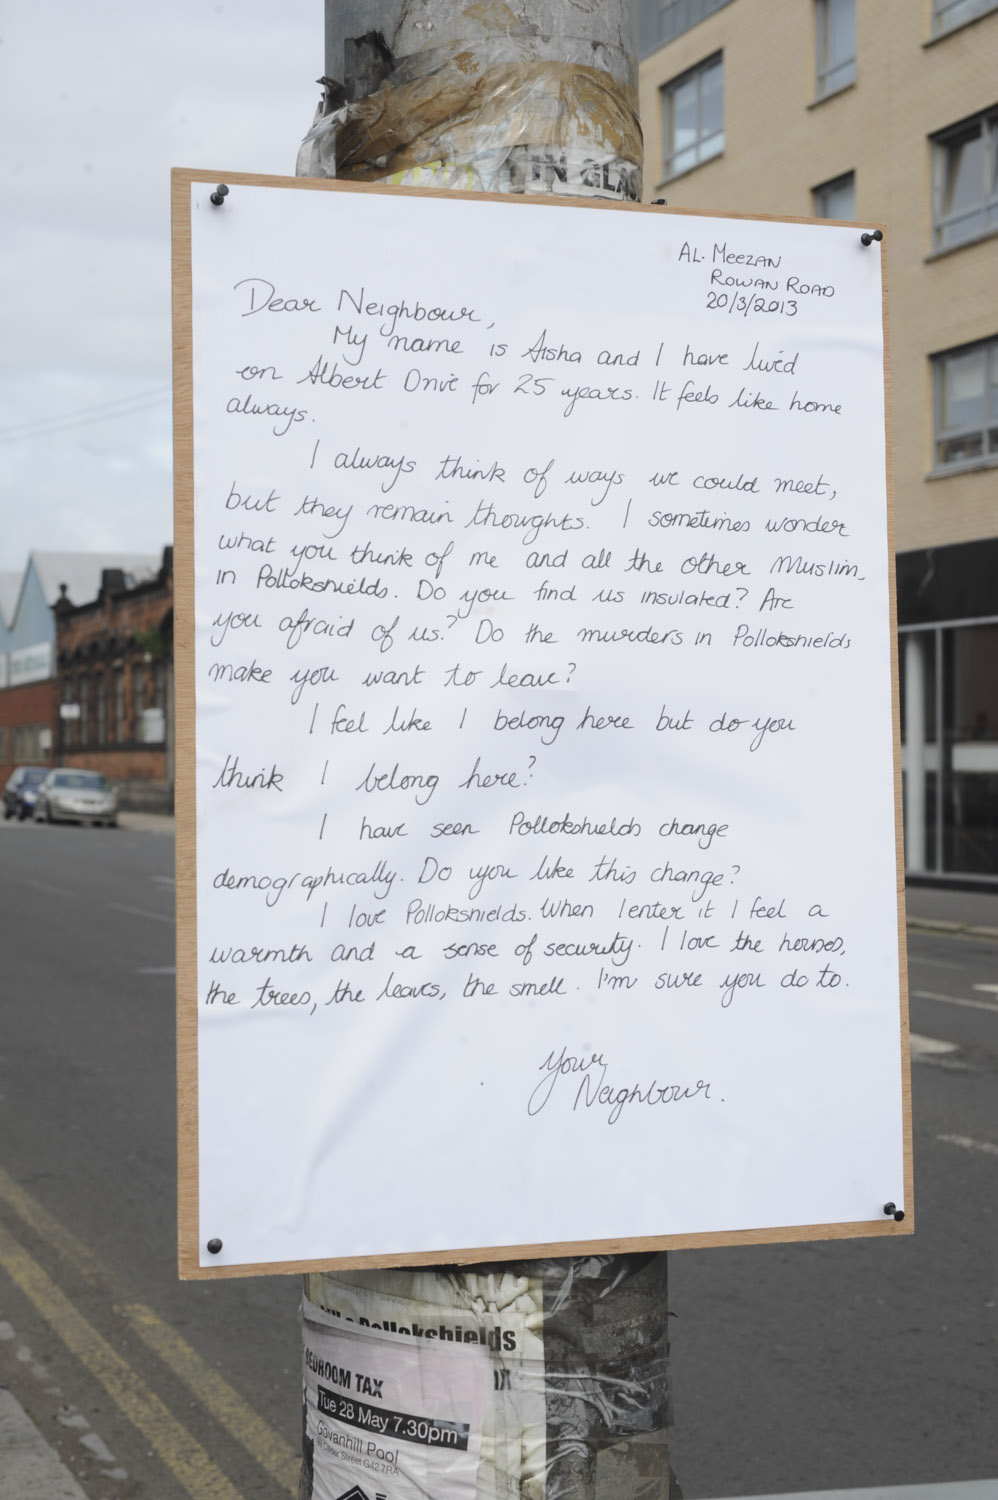 IN GLA
AL-MEEZAN
ROWAN ROAD
20/3/2013
Dear Neighbour,
My name is Aisha and I have lived
on Albert Drive for 25 years. It feels like home
always.
I always think of ways we could meet,
but they remain thoughts. I sometimes wonder
what you think of me and all the other Muslim
in Pollokshields. Do you find us insulated? Are
you afraid of us? Do the murders in Pollokshields
make you want to leave?
I feel like I belong here but do you
think I belong here?
I have seen Pollokshields change
demographically. Do you like this change?
I love Pollokshields. When I enter it I feel a
warmth and a sense of security. I love the houses,
the trees, the leaves, the smell. I'm sure you do to.
Your
Neighbour.
Pollokshields
BEDROOM TAX
Tue 28 May 7.30pm
Govanhill Pool
Street G42 7RA